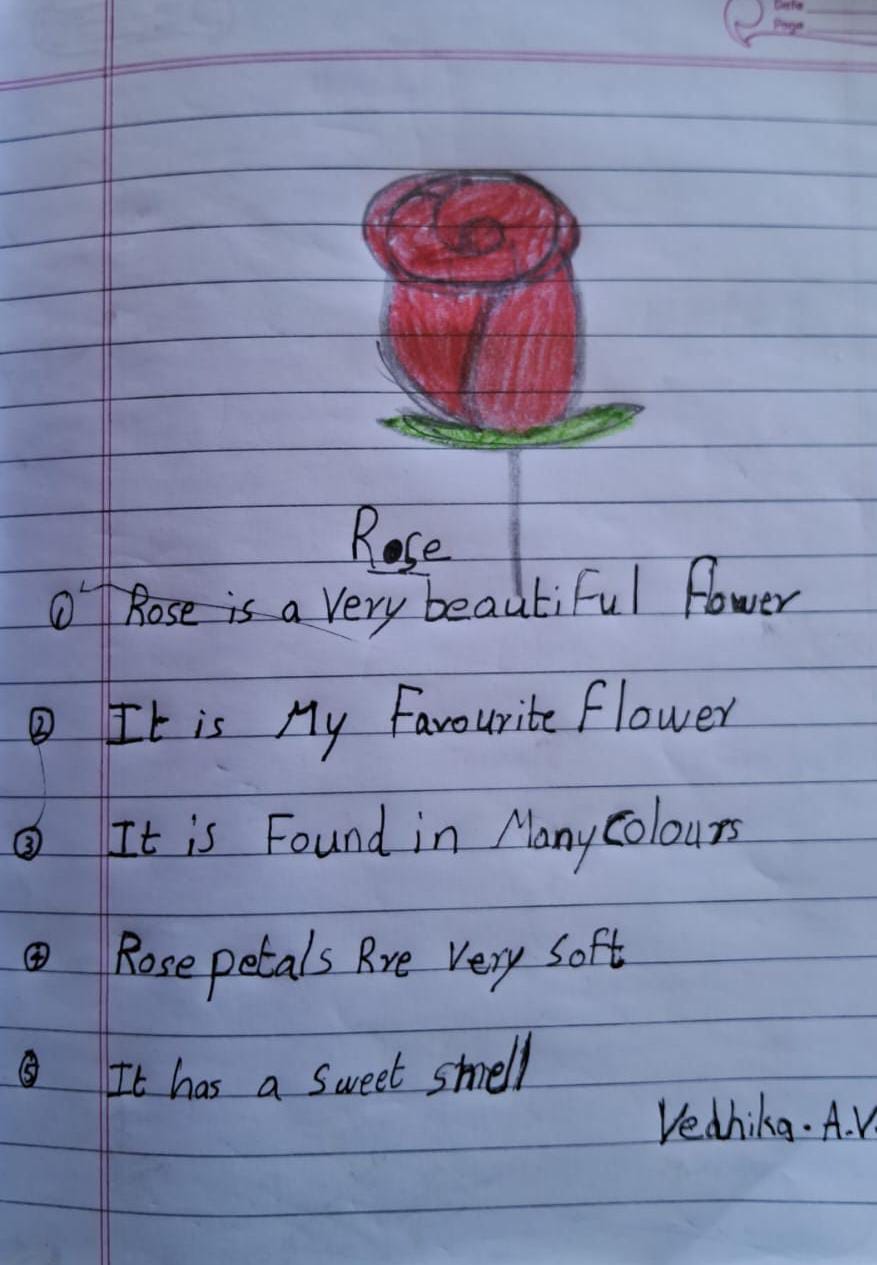 Date
Page
Rose
① Rose is a Very beautiful flower
② It is My Favourite flower
③ It is Found in Many Colours
④ Rose petals Are Very Soft
⑤ It has a Sweet smell
Vedhika. A.V.